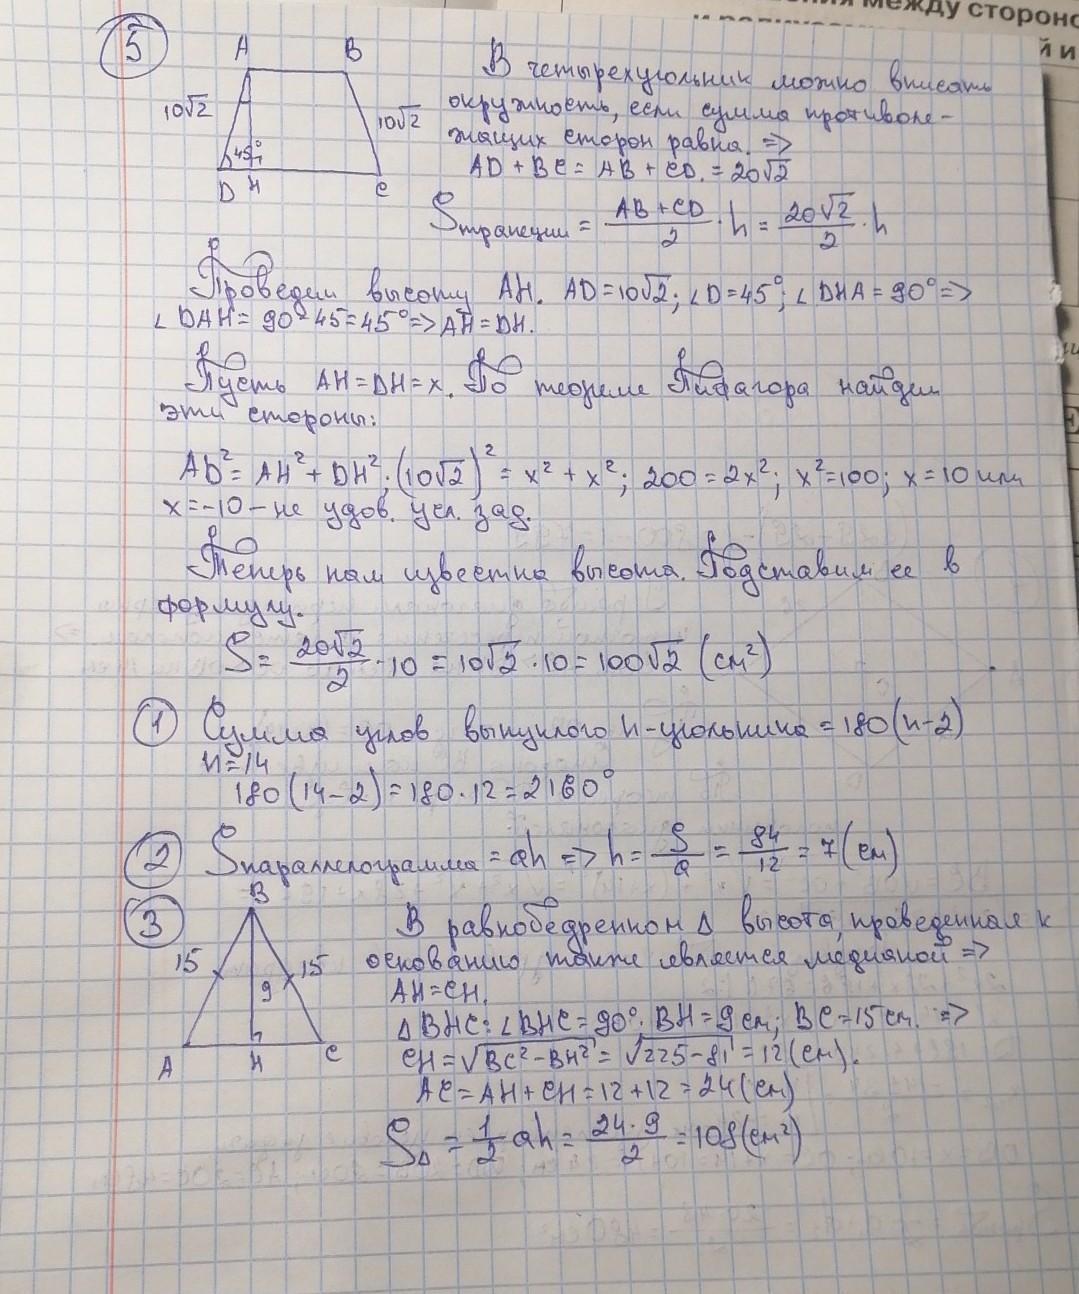 между сторонс
й и
5
A B
10√2
10√2
45°
D H C
В четырехугольник можно вписать
окружность, если сумма противоле-
жащих сторон равна. =>
AD + BC = AB + CD. = 20√2
Sтрапеции = (AB + CD)/2 · h = 20√2/2 · h
Проведем высоту AH. AD = 10√2; ∠D = 45°; ∠DHA = 90° =>
∠DAH = 90°-45 = 45° => AH = DH.
Пусть AH = DH = x. По теореме Пифагора найдем
эти стороны:
AD² = AH² + DH²; (10√2)² = x² + x²; 200 = 2x²; x² = 100; x = 10 или
x = -10 - не удов. усл. зад.
Теперь нам известна высота. Подставим ее в
формулу.
S = 20√2/2 · 10 = 10√2 · 10 = 100√2 (см²)
1 Сумма углов выпуклого n-угольника = 180(n-2)
n = 14
180(14-2) = 180 · 12 = 2160°
2 Sпараллелограмма = ah => h = S/a = 84/12 = 7(см)
3
B
15 15
9
A H C
В равнобедренном Δ высота, проведенная к
основанию также является медианой =>
AH = CH.
ΔBHC: ∠BHC = 90°. BH = 9 см; BC = 15 см. =>
CH = √BC² - BH² = √225 - 81 = 12 (см).
AC = AH + CH = 12 + 12 = 24 (см)
SΔ = 1/2 ah = 24 · 9/2 = 108 (см²)